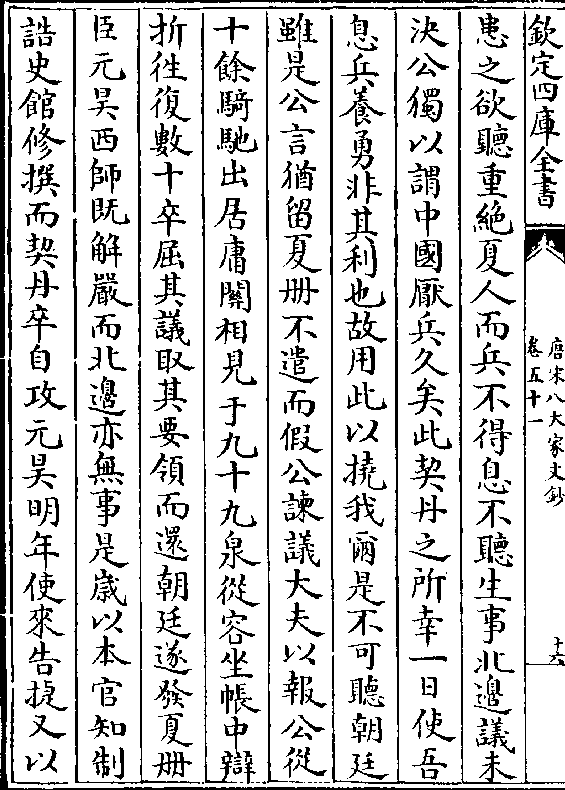 欽定四庫全書
唐宋八大家文鈔
卷五十一
十六
患之欲聽重絶夏人而兵不得息不聽生事北邊議未
決公獨以謂中國厭兵久矣此契丹之所幸一日使吾
息兵養勇非其利也故用此以撓我爾是不可聽朝廷
雖是公言猶留夏册不遣而假公諫議大夫以報公從
十餘騎馳出居庸關相見于九十九泉從容坐帳中辯
折徃復數十卒屈其議取其要領而還朝廷遂發夏册
臣元昊西師既解嚴而北邊亦無事是嵗以本官知制
誥史館修撰而契丹卒自攻元昊明年使來告捷又以